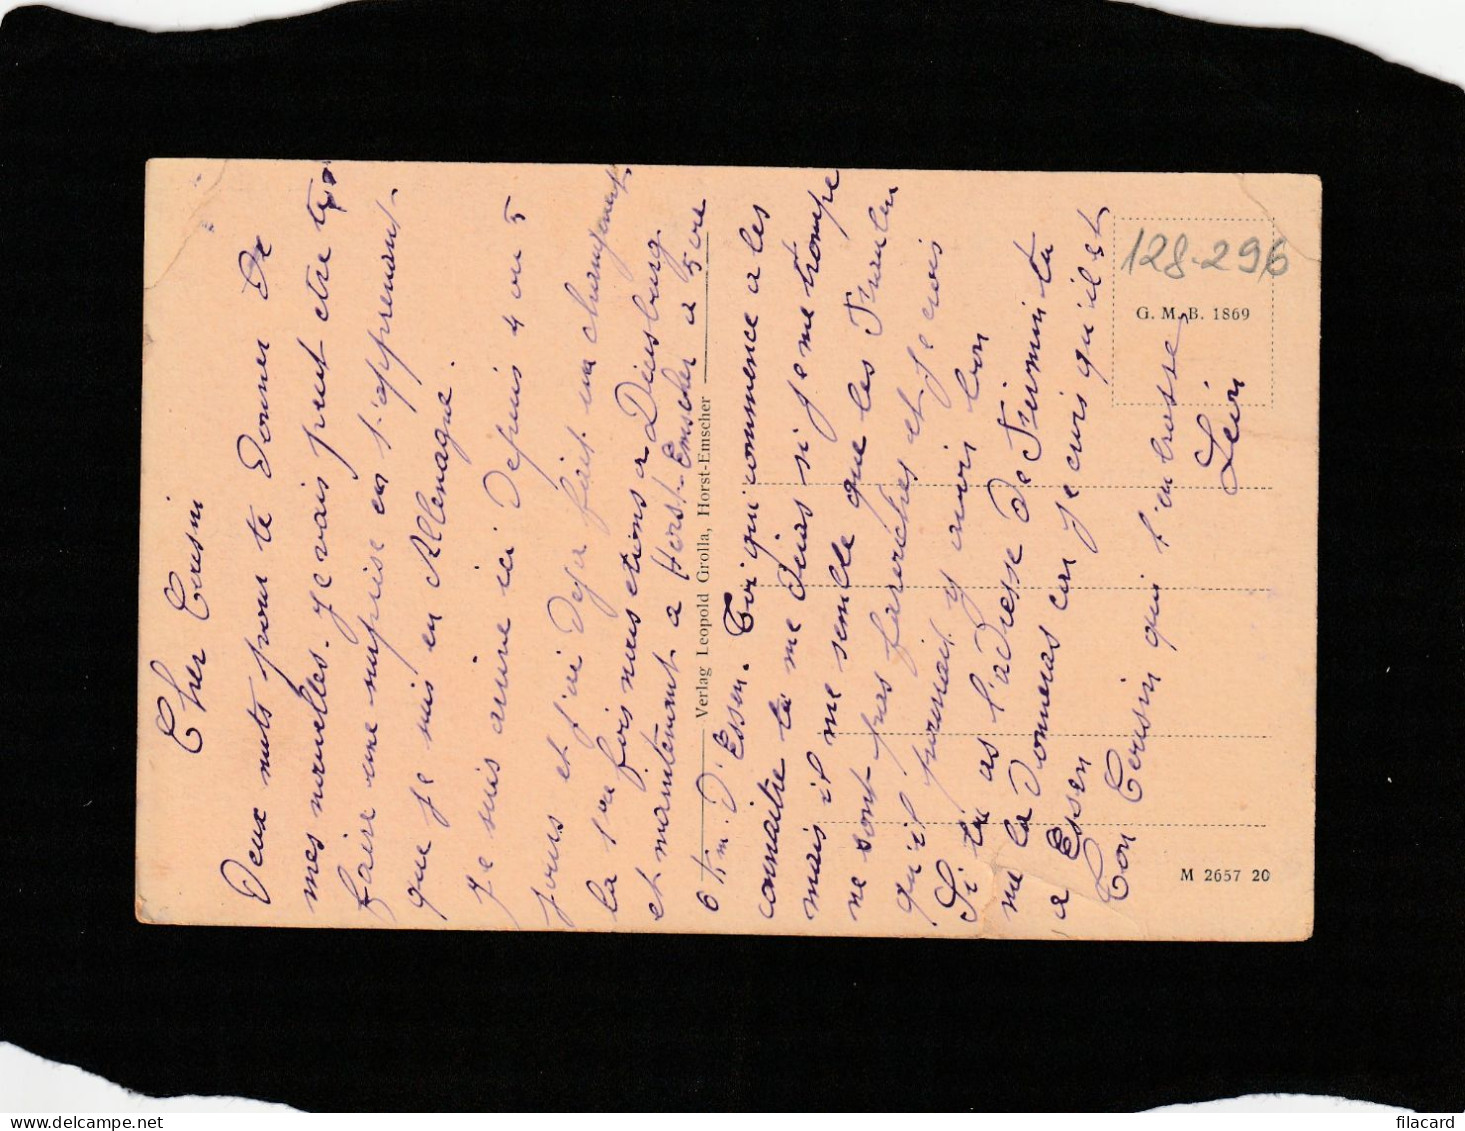 Cher Cousin
Deux mots pour te donner de
mes nouvelles. Je vais peut etre te
faire une surprise en t'apprenant
que je suis en Allemagne.
Je suis arrivé ici depuis 4 ou 5
jours et j'ai deja fait un changement
la 1ere fois nous etions a Duisbourg
et maintenant a Horst-Emscher a 5 ou
6 Km. d'Essen. Toi qui commence a les
connaitre tu me diras si je me trompe
mais il me semble que les
ne sont pas farouches et je crois
qu'il y avoir bon
Si tu as l'adresse de Firmin tu
me la donneras car je crois qu'il est
a Essen
Ton Cousin qui t'embrasse
Verlag Leopold Grolla, Horst-Emscher
128-296
G. M. B. 1869
M 2657 20
filacard